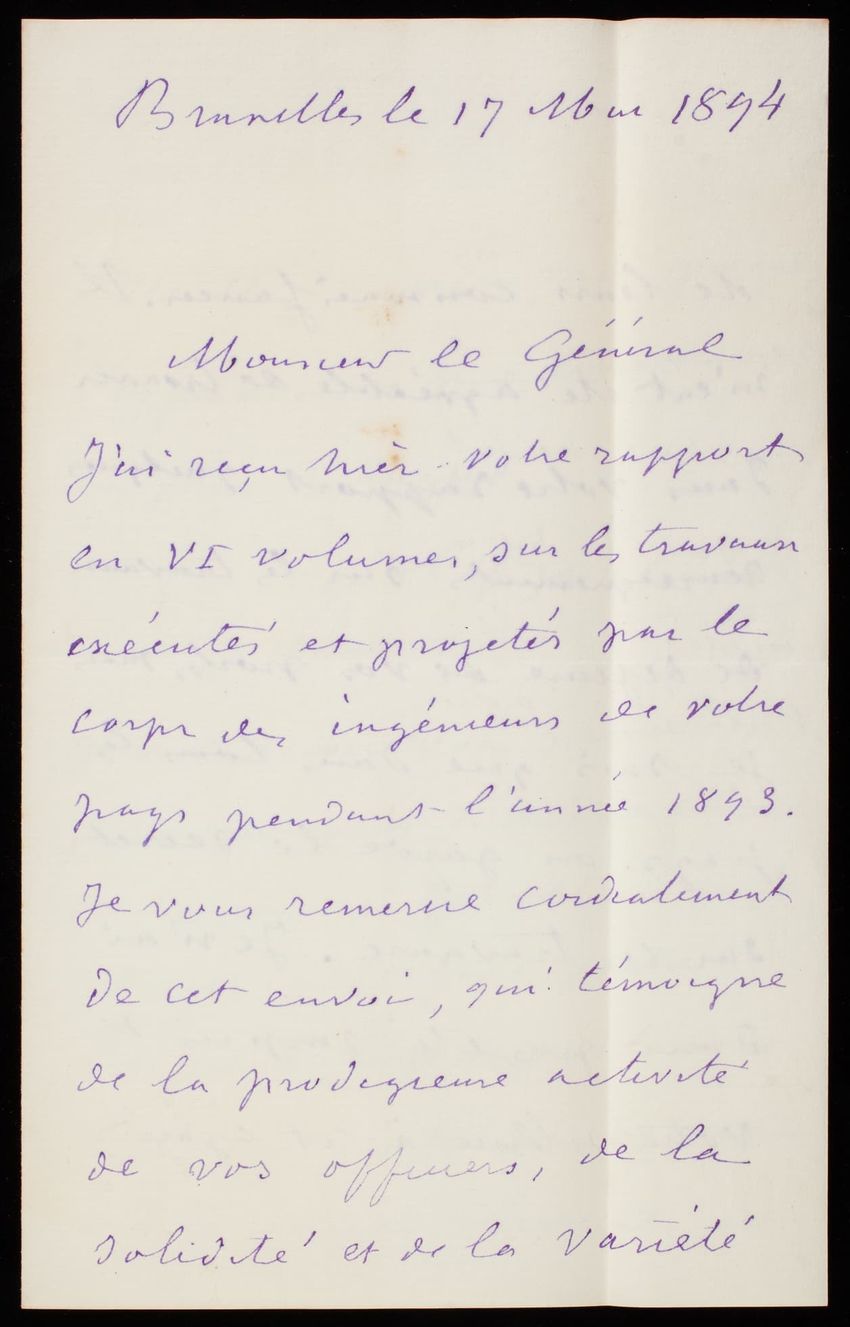 Bruxelles le 17 Mai 1894
Monsieur le Général
J'ai reçu hier votre rapport
en VI volumes, sur les travaux
exécutés et projetés par le
corps des ingénieurs de votre
pays pendant l'année 1893.
Je vous remercie cordialement
de cet envoi, qui témoigne
de la prodigieuse activité
de vos officiers, de la
solidité et de la variété